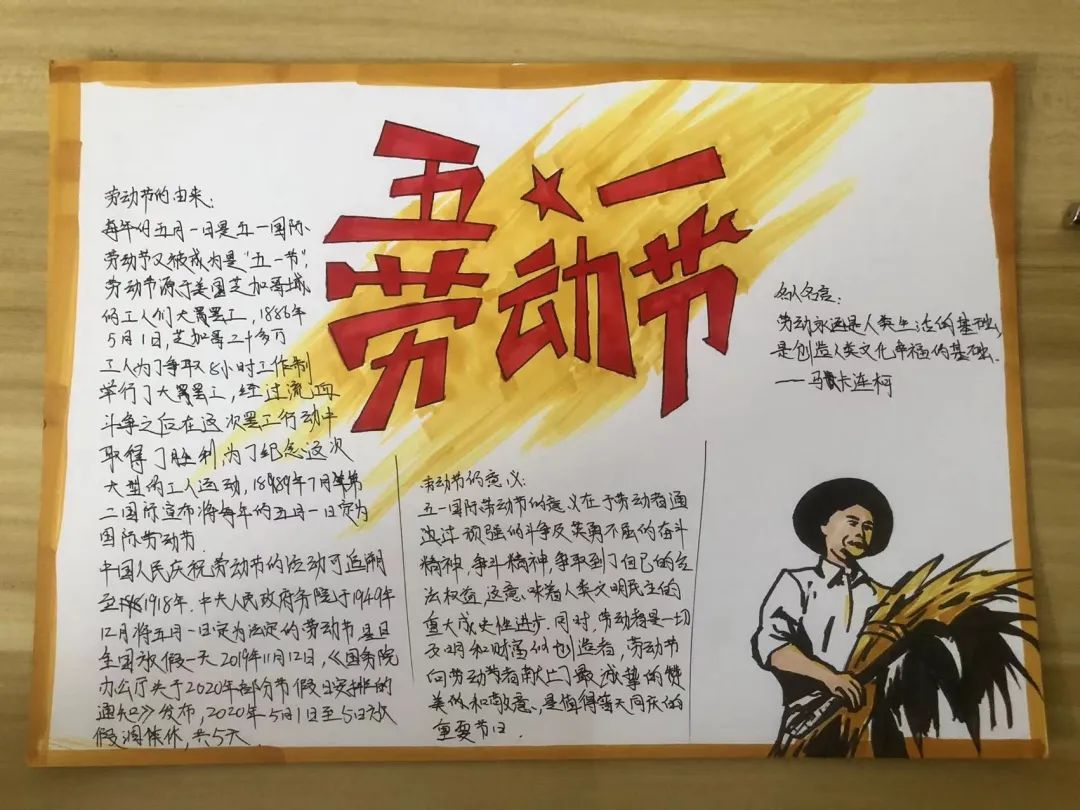 五一
劳动节
劳动节的由来:
每年的五月一日是五一国际
劳动节又被成为是"五一节",
劳动节源于美国芝加哥城
的工人们大罢工,1886年
5月1日,芝加哥二十多万
工人为了争取8小时工作制
举行了大罢工,经过流血
斗争之后在这次罢工行动中
取得了胜利,为了纪念这次
大型的工人运动,1889年7月第
二国际宣布将每年的五月一日定为
国际劳动节.
中国人民庆祝劳动节的活动可追溯
至1918年.中央人民政府务院于1949年
12月将五月一日定为法定的劳动节,是日
全国放假一天.2019年11月12日,《国务院
办公厅关于2020年部分节假日安排的
通知》发布,2020年5月1日至5日放
假调休休,共5天.
劳动节的意义:
五一国际劳动节的意义在于劳动者通
过顽强的斗争及英勇不屈的奋斗
精神,争斗精神,争取到了自己的合
法权益,这意味着人类文明民主的
重大历史性进步.同时,劳动者是一切
文明和财富的创造者,劳动节
向劳动节者献上了最诚挚的赞
美的和敬意,是值得普天同庆的
重要节日.
名人名言:
劳动永远是人类生活的基础,
是创造人类文化幸福的基础.
——马卡连柯